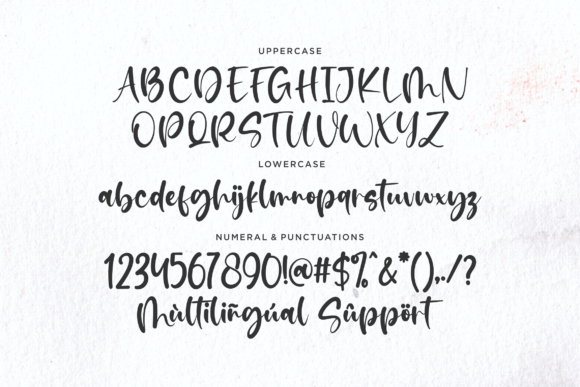 UPPERCASE
ABCDEFGHIJKLMN
OPQRSTUVWXYZ
LOWERCASE
abcdefghijklmnopqrstuvwxyz
NUMERAL & PUNCTUATIONS
1234567890!@#$%^&*().,/?
Mùltiliñgúal Sûppört